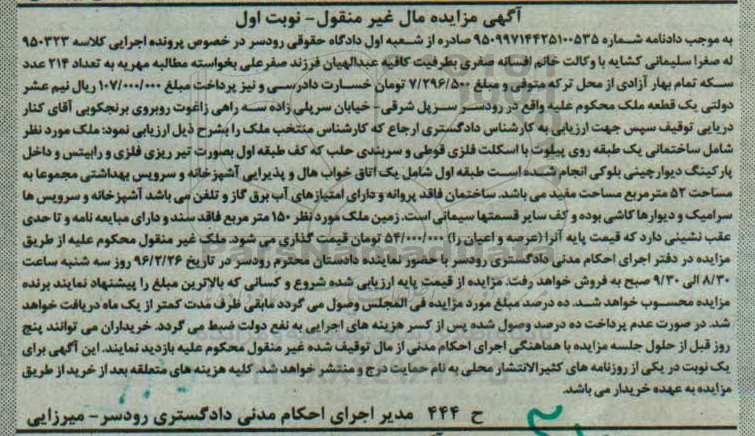 آگهی مزایده مال غیر منقول- نوبت اول
به موجب دادنامه شماره ۹۵۰۹۹۷۱۴۴۲۵۱۰۰۵۳۵ صادره از شعبه اول دادگاه حقوقی رودسر در خصوص پرونده اجرایی کلاسه ۹۵۰۳۲۳
له صغرا سلیمانی کشایه با وکالت خانم افسانه صفری بطرفیت کافیه عبدالهیان فرزند صفرعلی بخواسته مطالبه مهریه به تعداد ۲۱۴ عدد
سکه تمام بهار آزادی از محل ترکه متوفی و مبلغ ۷/۲۹۶/۵۰۰ تومان خسارت دادرسی و نیز پرداخت مبلغ ۱۰۷/۰۰۰/۰۰۰ ریال نیم عشر
دولتی یک قطعه ملک محکوم علیه واقع در رودسر سرپل شرقی- خیابان سرپلی زاده سه راهی زاغوت روبروی برنجکوبی آقای کنار
دریایی توقیف سپس جهت ارزیابی به کارشناس دادگستری ارجاع که کارشناس منتخب ملک را بشرح ذیل ارزیابی نمود: ملک مورد نظر
شامل ساختمانی یک طبقه روی پیلوت با اسکلت فلزی قوطی و سربندی حلب که کف طبقه اول بصورت تیر ریزی فلزی و رابیتس و داخل
پارکینگ دیوارچینی بلوکی انجام شده است طبقه اول شامل یک اتاق خواب هال و پذیرایی آشپزخانه و سرویس بهداشتی مجموعا به
مساحت ۵۲ متر مربع مساحت مفید می باشد. ساختمان فاقد پروانه و دارای امتیازهای آب برق گاز و تلفن می باشد آشپزخانه و سرویس ها
سرامیک و دیوارها کاشی بوده و کف سایر قسمتها سیمانی است. زمین ملک مورد نظر ۱۵۰ متر مربع فاقد سند و دارای مبایعه نامه و تا حدی
عقب نشینی دارد که قیمت پایه آنرا (عرصه و اعیان را) ۵۴/۰۰۰/۰۰۰ تومان قیمت گذاری می شود. ملک غیر منقول محکوم علیه از طریق
مزایده در دفتر اجرای احکام مدنی دادگستری رودسر با حضور نماینده دادستان محترم رودسر در تاریخ ۹۶/۲/۲۶ روز سه شنبه ساعت
۸/۳۰ الی ۹/۳۰ صبح به فروش خواهد رفت. مزایده از قیمت پایه ارزیابی شده شروع و کسانی که بالاترین مبلغ را پیشنهاد نمایند برنده
مزایده محسوب خواهد شد. ده درصد مبلغ مورد مزایده فی المجلس وصول می گردد مابقی ظرف مدت کمتر از یک ماه دریافت خواهد
شد. در صورت عدم پرداخت ده درصد وصول شده پس از کسر هزینه های اجرایی به نفع دولت ضبط می گردد. خریداران می توانند پنج
روز قبل از حلول جلسه مزایده با هماهنگی اجرای احکام مدنی از مال توقیف شده غیر منقول محکوم علیه بازدید نمایند. این آگهی برای
یک نوبت در یکی از روزنامه های کثیرالانتشار محلی به نام حمایت درج و منتشر خواهد شد. کلیه هزینه های متعلقه بعد از خرید از طریق
مزایده به عهده خریدار می باشد.
ح ۴۴۴ مدیر اجرای احکام مدنی دادگستری رودسر- میرزایی